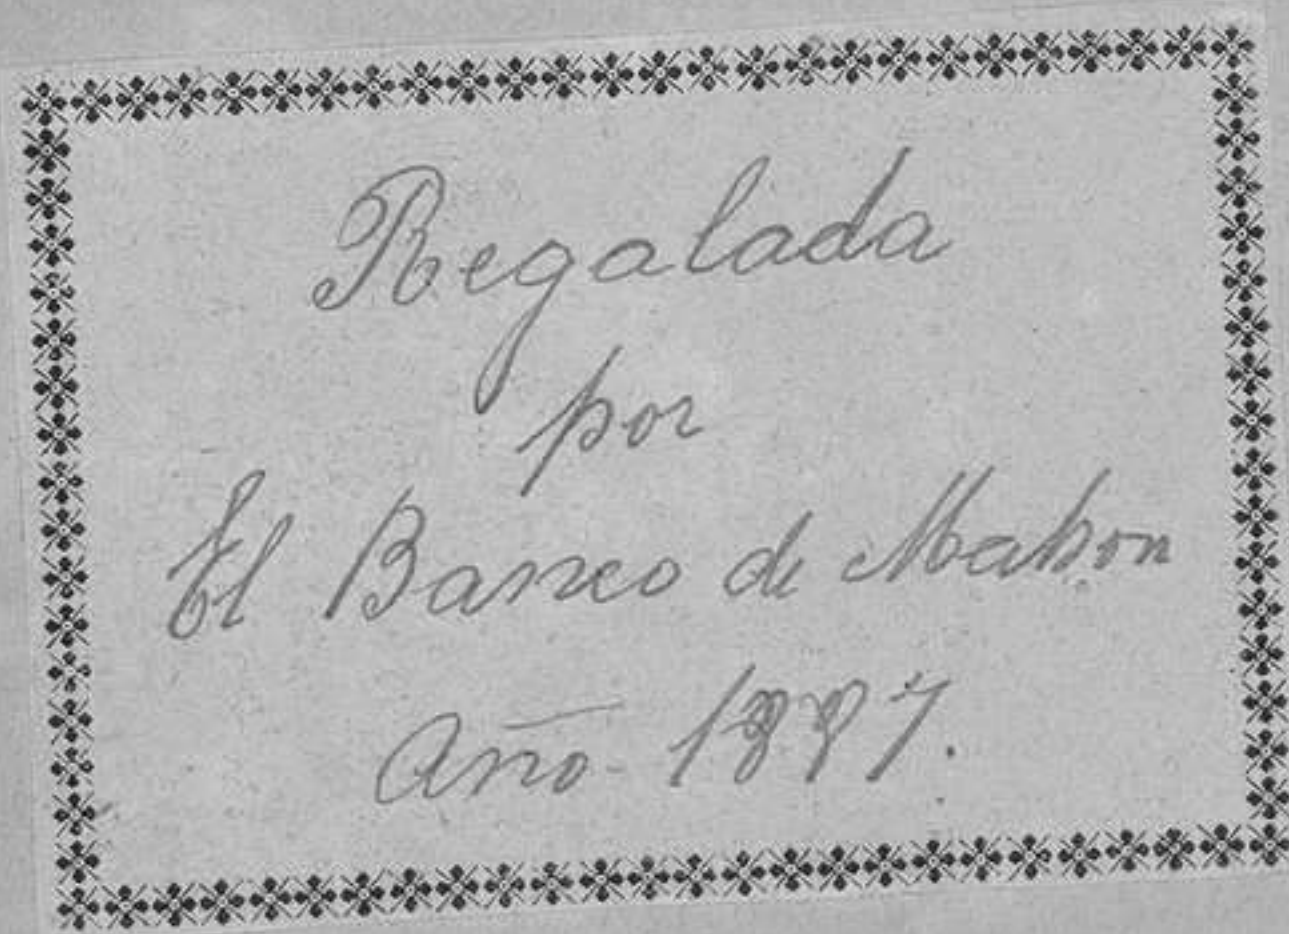 Regalada
por
El Banco de Mahon
año 1887.